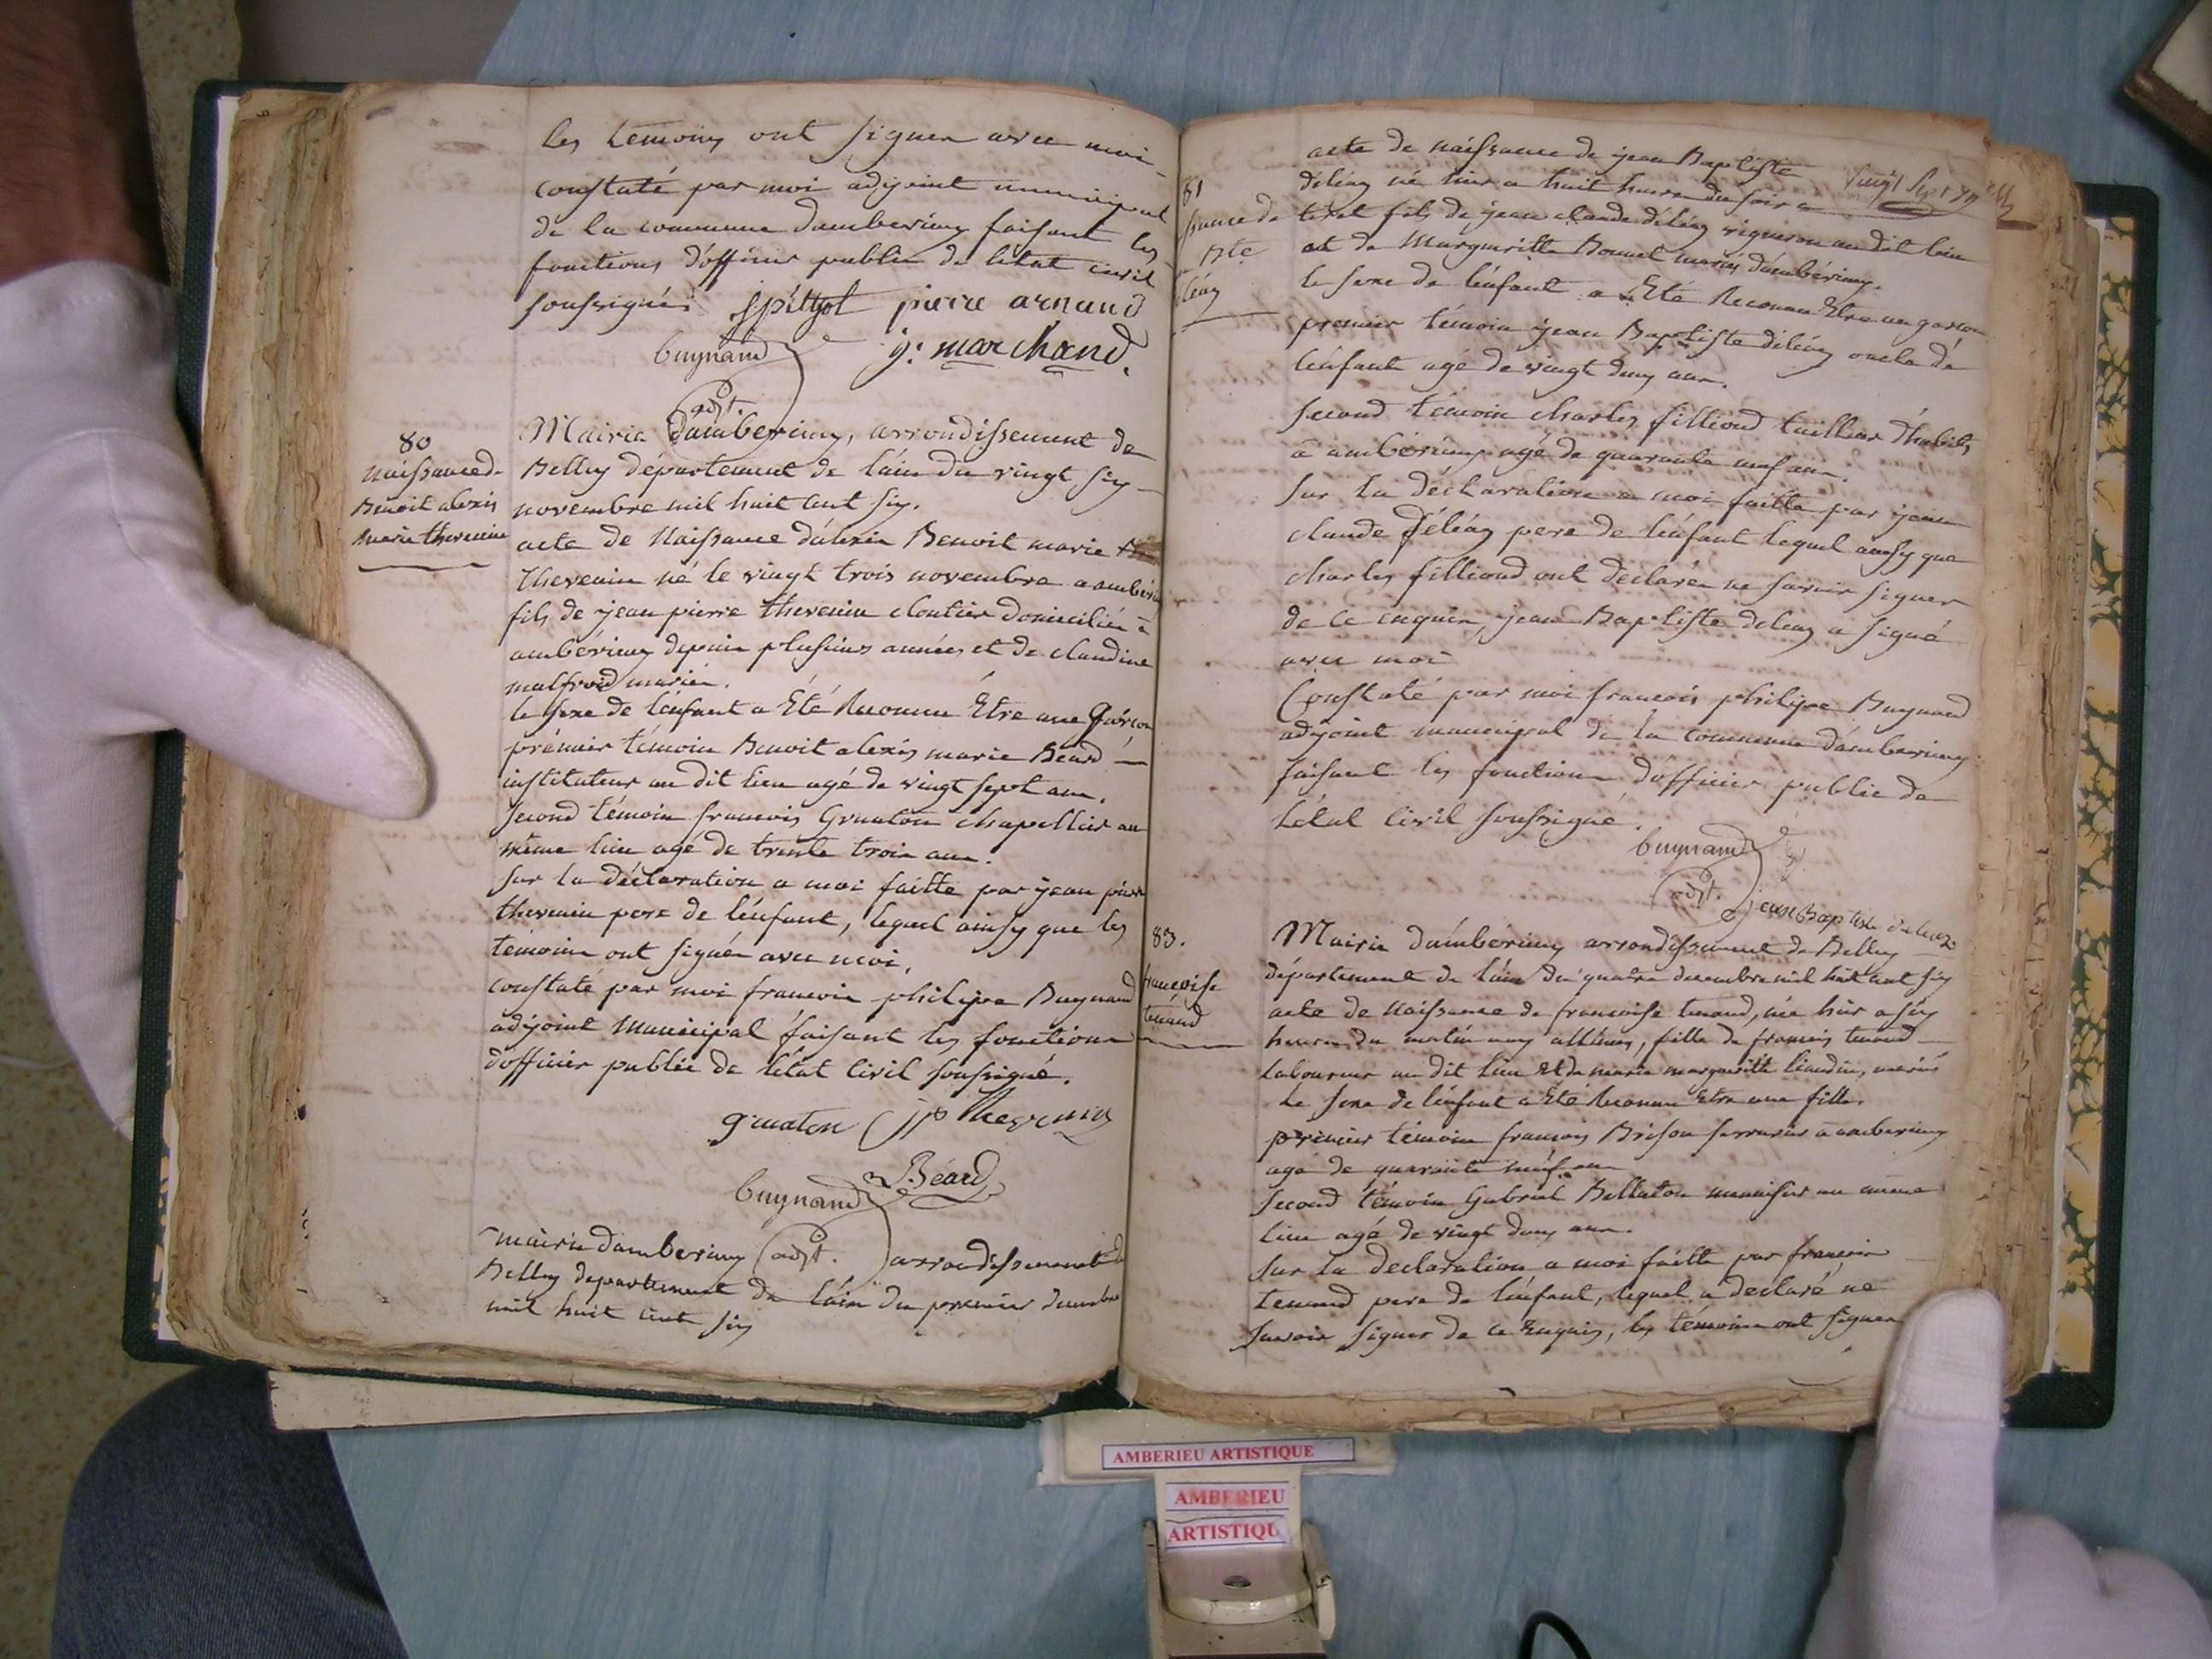 les temoins ont signer avec moi
constaté par moi adjoint municipal
de la commune damberieux faisant les
fonctions d'officier public de létat civil
soussignés. spittyol pierre arnaud
buynand j. marchand.
adjt.
80
Naissance de
Benoit alexis
marie thevenin
Mairie dambérieux, arrondissement de
Belley département de láin du vingt six
novembre mil huit cent six.
acte de Naissance dálexis Benoit marie
Thevenin né le vingt trois novembre a ambérieux
fils de jean pierre thevenin cloutier domicilié à
ambérieux depuis plusieurs années et de claudine
malfroid mariés.
le sexe de lénfant a Eté Reconnu Etre une Garçon
prémier témoin Benoit alexis marie Béard
instituteur au dit lieu agé de vingt sept ans.
second témoin francois Gruaton chapellier au
même lieu agé de trente trois ans.
sur la déclaration a moi faitte par jean pierre
thevenin pere de lénfant, lequel ainsy que les
témoins ont signés avec moi.
constaté par moi francois philipe Buynand
adjoint Municipal faisant les fonctions
dofficier public de létat Civil soussigné.
gruaton jp thevenin
Béard
buynand
adjt.
mairie damberieux arrondissement de
Belley departement de láin du premier decembre
mil huit cent six
81
ssance de
Bte
léaz
acte de naissance de jean Baptiste
déléaz né hier a huit heures du soir a
tiret fils de jean claude déléaz vigneron au dit lieu
et de Marguerite Bonnet mariés dámbérieux.
le sexe de lénfant a Eté Reconnu Etre un garcon
premier témoin jean Baptiste déléaz oncle de
lénfant agé de vingt deux ans.
second témoin charles fillioud tailleur d'habits
à ambérieux agé de quarante neuf ans.
sur la déclaration a moi faitte par jean
claude Déléaz pere de lénfant lequel ainsy que
charles fillioud ont déclarés ne savoir signer
de ce enquis, jean Baptiste deleaz a signé
avec moi
Constaté par moi francois philipe Buynand
adjoint municipal de la commune dámberieux
faisant les fonctions d'officier public de
létat Civil soussigné.
buynand
adjt. jean Baptiste deleaz
83.
francoise
tenand
Mairie dámbérieux arrondissement de Belley
département de láin du quatre decembre mil huit cent six
acte de Naissance de francoise tenand, née hier a six
heures du matin aux allimes, fille de francois tenand
laboureur au dit lieu et de marie marguerite liaudin, mariés
Le sexe de lénfant a Eté Reconnu Etre une fille.
prémier témoin francois Brison serrurier à amberieux
agé de quarante neuf ans
second témoin Gabriel Bellaton menuisier au même
lieu agé de vingt deux ans.
sur la declaration a moi faitte par francois
tenand pere de lénfant, lequel a declaré ne
savoir signer de ce Enquis, les témoins ont signer
AMBERIEU ARTISTIQUE
AMBERIEU
ARTISTIQU